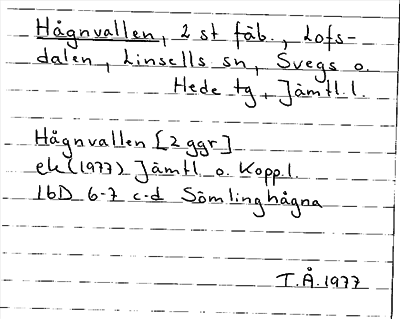 Hågnvallen, 2 st fäb., Lofs-
dalen, Linsells sn, Svegs o.
Hede tg, Jämtl.l.
Hågnvallen [2 ggr]
ek (1977) Jämtl o. Kopp.l.
16D 6-7 c-d Sömlinghågna
T.Å.1977